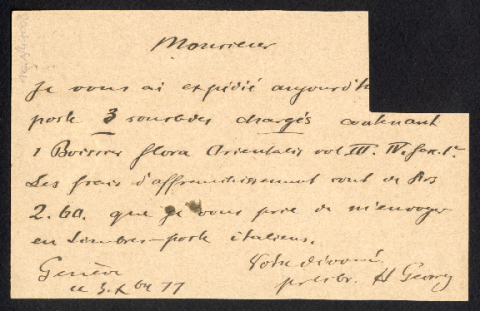 Monsieur
Je vous ai expédié aujourd'h
poste 3 sousbdes chargés contenant
1 Boissier flora Orientalis vol III. IV. fasc. 1r
Les frais d'affranchissement sont de frs
2.60. que je vous prie de m'envoyer
en timbres-poste italiens.
Votre dévoué
Genève
ce 5. Xbre 77
H Georg